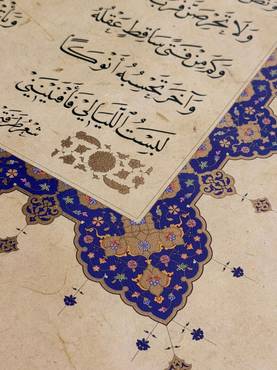 وَلَا تَحْرِصَنَّ فَرُبَّ
وَكَمْ مِنْ فَتًى سَاقِطٍ عَقْلُهُ
وَآخَرَ تَحْسَبُهُ أَنْوَكًا
لَبِسْتُ اللَّيَالِيَ فَأَفْنَيْنَنِي
شعر طرفة